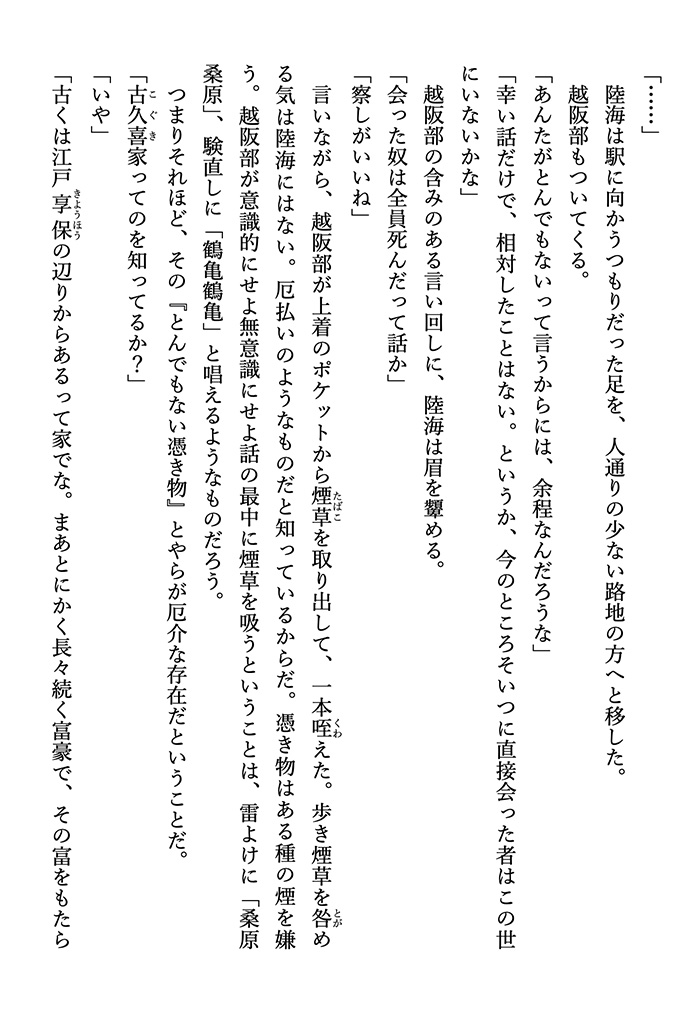 「……」
陸海は駅に向かうつもりだった足を、人通りの少ない路地の方へと移した。
越阪部もついてくる。
「あんたがとんでもないって言うからには、余程なんだろうな」
「幸い話だけで、相対したことはない。というか、今のところそいつに直接会った者はこの世
にいないかな」
越阪部の含みのある言い回しに、陸海は眉を顰める。
「会った奴は全員死んだって話か」
「察しがいいね」
言いながら、越阪部が上着のポケットから煙草を取り出して、一本咥えた。歩き煙草を咎め
る気は陸海にはない。厄払いのようなものだと知っているからだ。憑き物はある種の煙を嫌
う。越阪部が意識的にせよ無意識にせよ話の最中に煙草を吸うということは、雷よけに「桑原
桑原」、験直しに「鶴亀鶴亀」と唱えるようなものだろう。
つまりそれほど、その『とんでもない憑き物』とやらが厄介な存在だということだ。
「古久喜家ってのを知ってるか？」
「いや」
「古くは江戸享保の辺りからあるって家でな。まあとにかく長々続く富豪で、その富をもたら